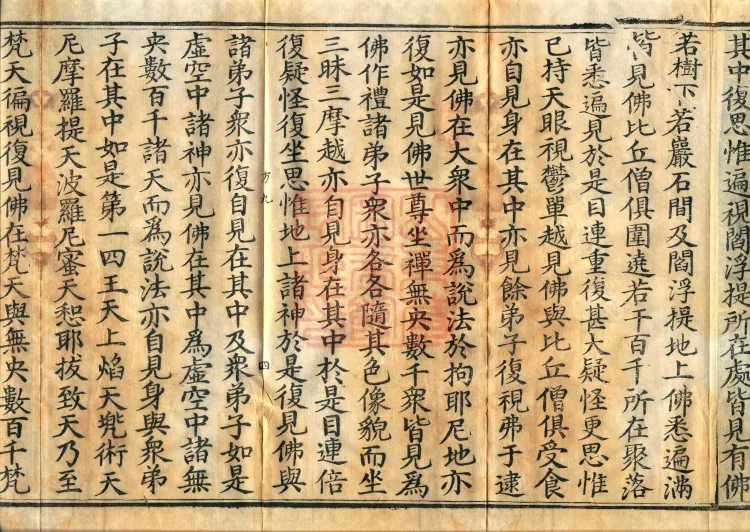 其中復思惟遍視閻浮提所在處皆見有佛
若樹下若巖石間及閻浮提地上佛悉遍滿
皆見佛比丘僧俱圍遶若干百千所在聚落
皆悉遍見於是目連重復甚大疑怪更思惟
已持天眼視鬱單越見佛與比丘僧俱受食
亦自見身在其中亦見餘弟子復視弗于逮
亦見佛在大衆中而爲說法於拘耶尼地亦
復如是見佛世尊坐禪無央數千衆皆見爲
佛作禮諸弟子衆亦各各隨其色像貌而坐
三昧三摩越亦自見身在其中於是目連倍
復疑怪復坐思惟地上諸神於是復見佛與
万九 四
諸弟子衆亦復自見在其中及衆弟子如是
虛空中諸神亦見佛在其中爲虛空中諸無
央數百千諸天而爲說法亦自見身與衆弟
子在其中如是第一四王天上焰天兠術天
尼摩羅提天波羅尼蜜天惒耶拔致天乃至
梵天徧視復見佛在梵天與無央數百千梵